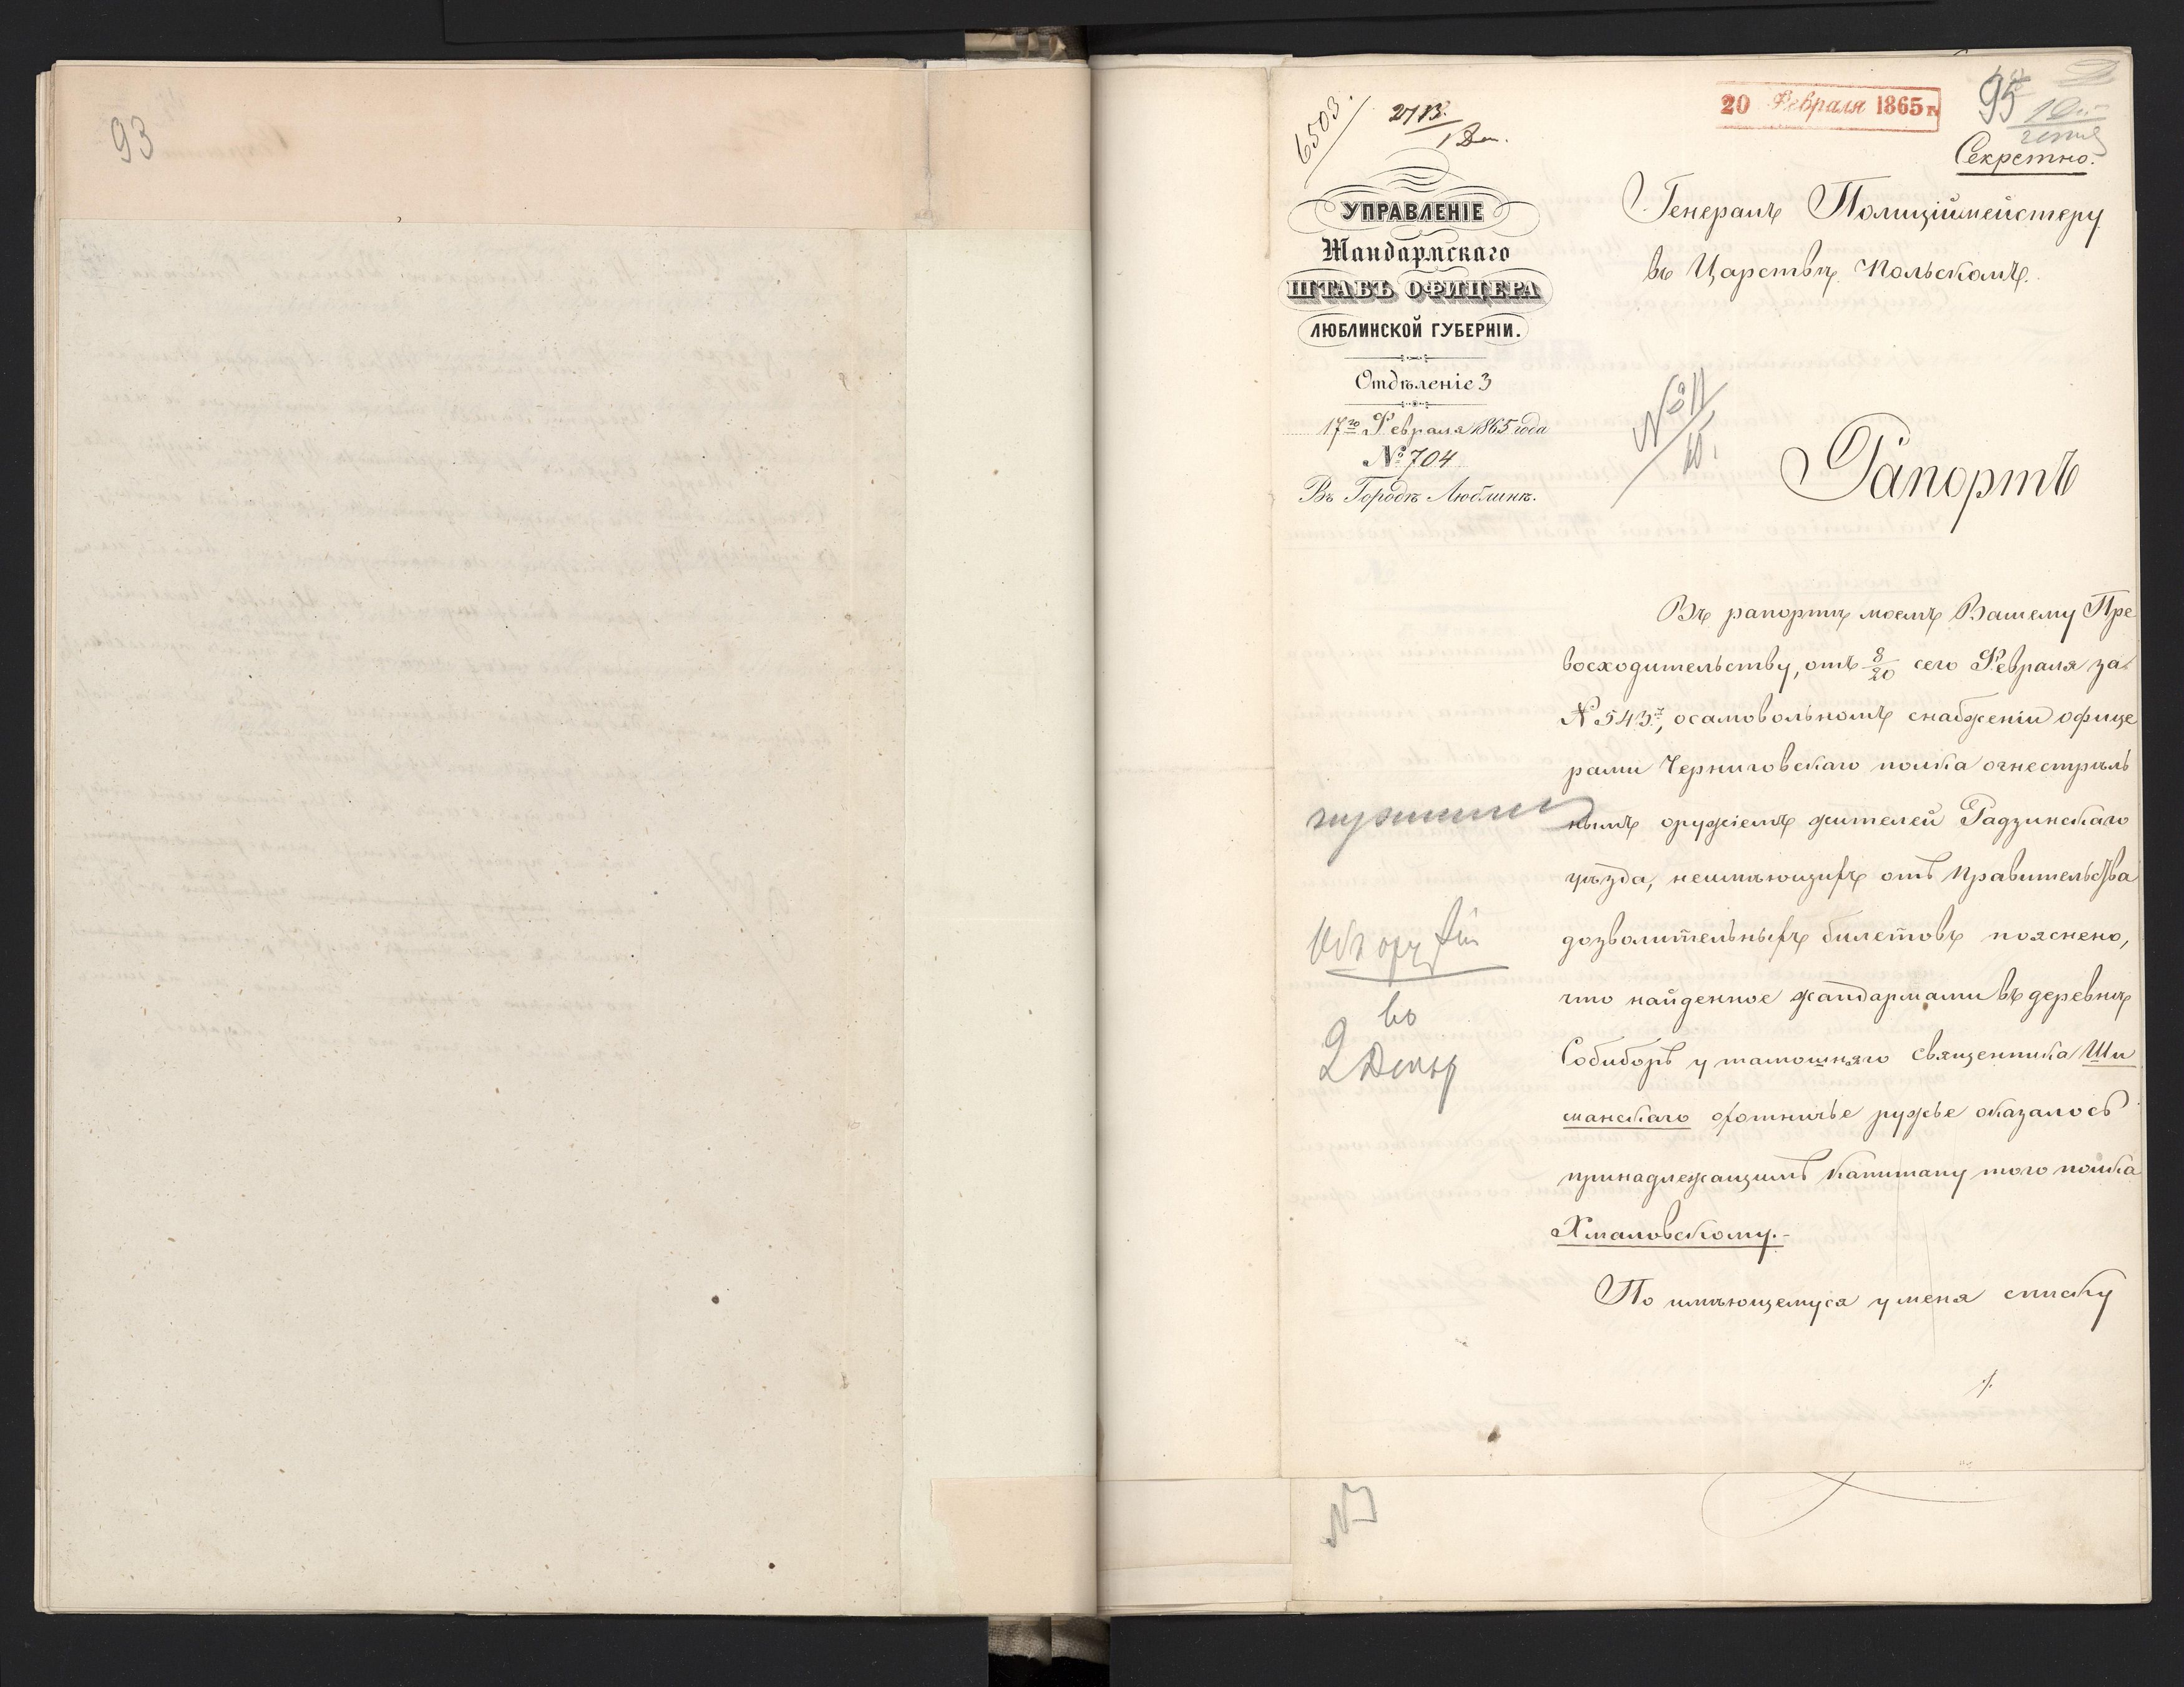 93
6503.
20 Февраля 1865 г.
95
Секретно.
УПРАВЛЕНІЕ
Жандармскаго
ШТАБЪ ОФИЦЕРА
ЛЮБЛИНСКОЙ ГУБЕРНІИ.
Отдѣленіе 3
17го Февраля 1865 года
№ 704
Въ Городѣ Люблинѣ.
Генералъ Полиціймейстеру
въ Царствѣ Польскомъ.
Рапортъ
Въ рапортѣ моемъ Вашему Пре
восходительству, отъ 8/20 сего Февраля за
№ 543, о самовольномъ снабженіи офице
рами Черниговскаго полка огнестрѣль
нымъ оружіемъ жителей Радзинскаго
уѣзда, неимѣющихъ отъ Правительства
дозволительныхъ билетовъ пояснено,
что найденное жандармами въ деревнѣ
Собиборъ у тамошняго священника Ши
манскаго охотничье ружье оказалось
принадлежащимъ Капитану того полка
Хмаловскому.-
По имѣющемуся у меня списку
Объ оружіи
во